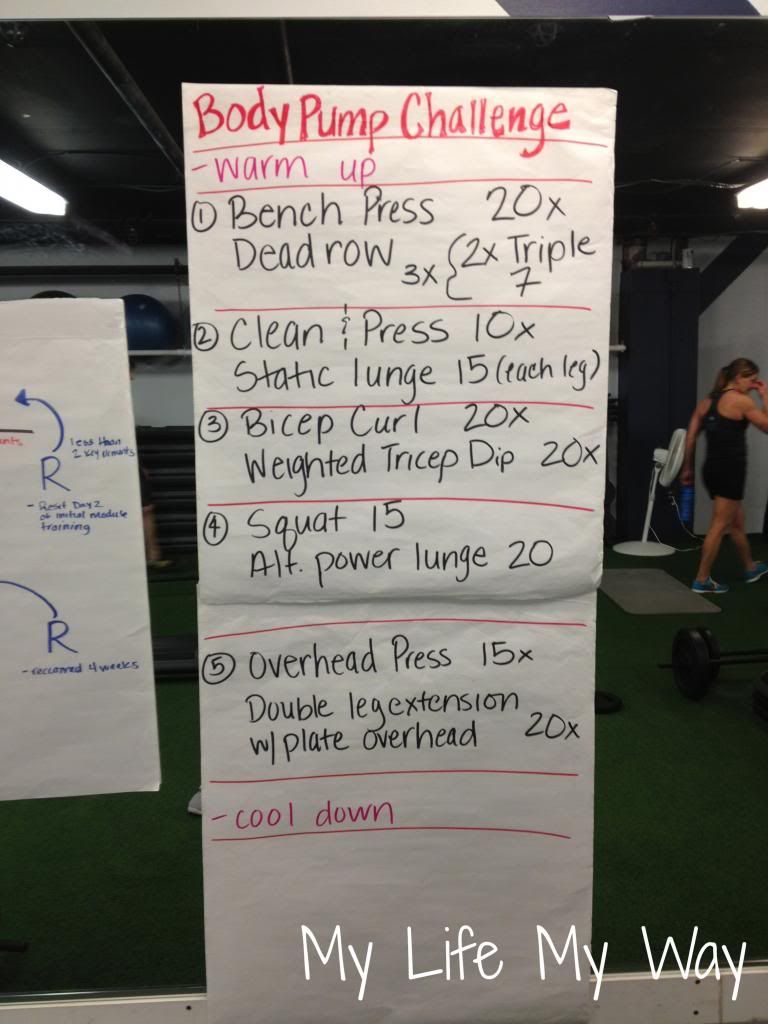 Body Pump Challenge
- warm up
① Bench Press 20x
Dead row 3x { 2x Triple
7
② Clean & Press 10x
Static lunge 15 (each leg)
③ Bicep Curl 20x
Weighted Tricep Dip 20x
④ Squat 15
Alt. power lunge 20
⑤ Overhead Press 15x
Double leg extension
w/ plate overhead 20x
- cool down
less than
2 key
R
- Reset Day 2
of initial module
training
R
- 4 weeks
My Life My Way